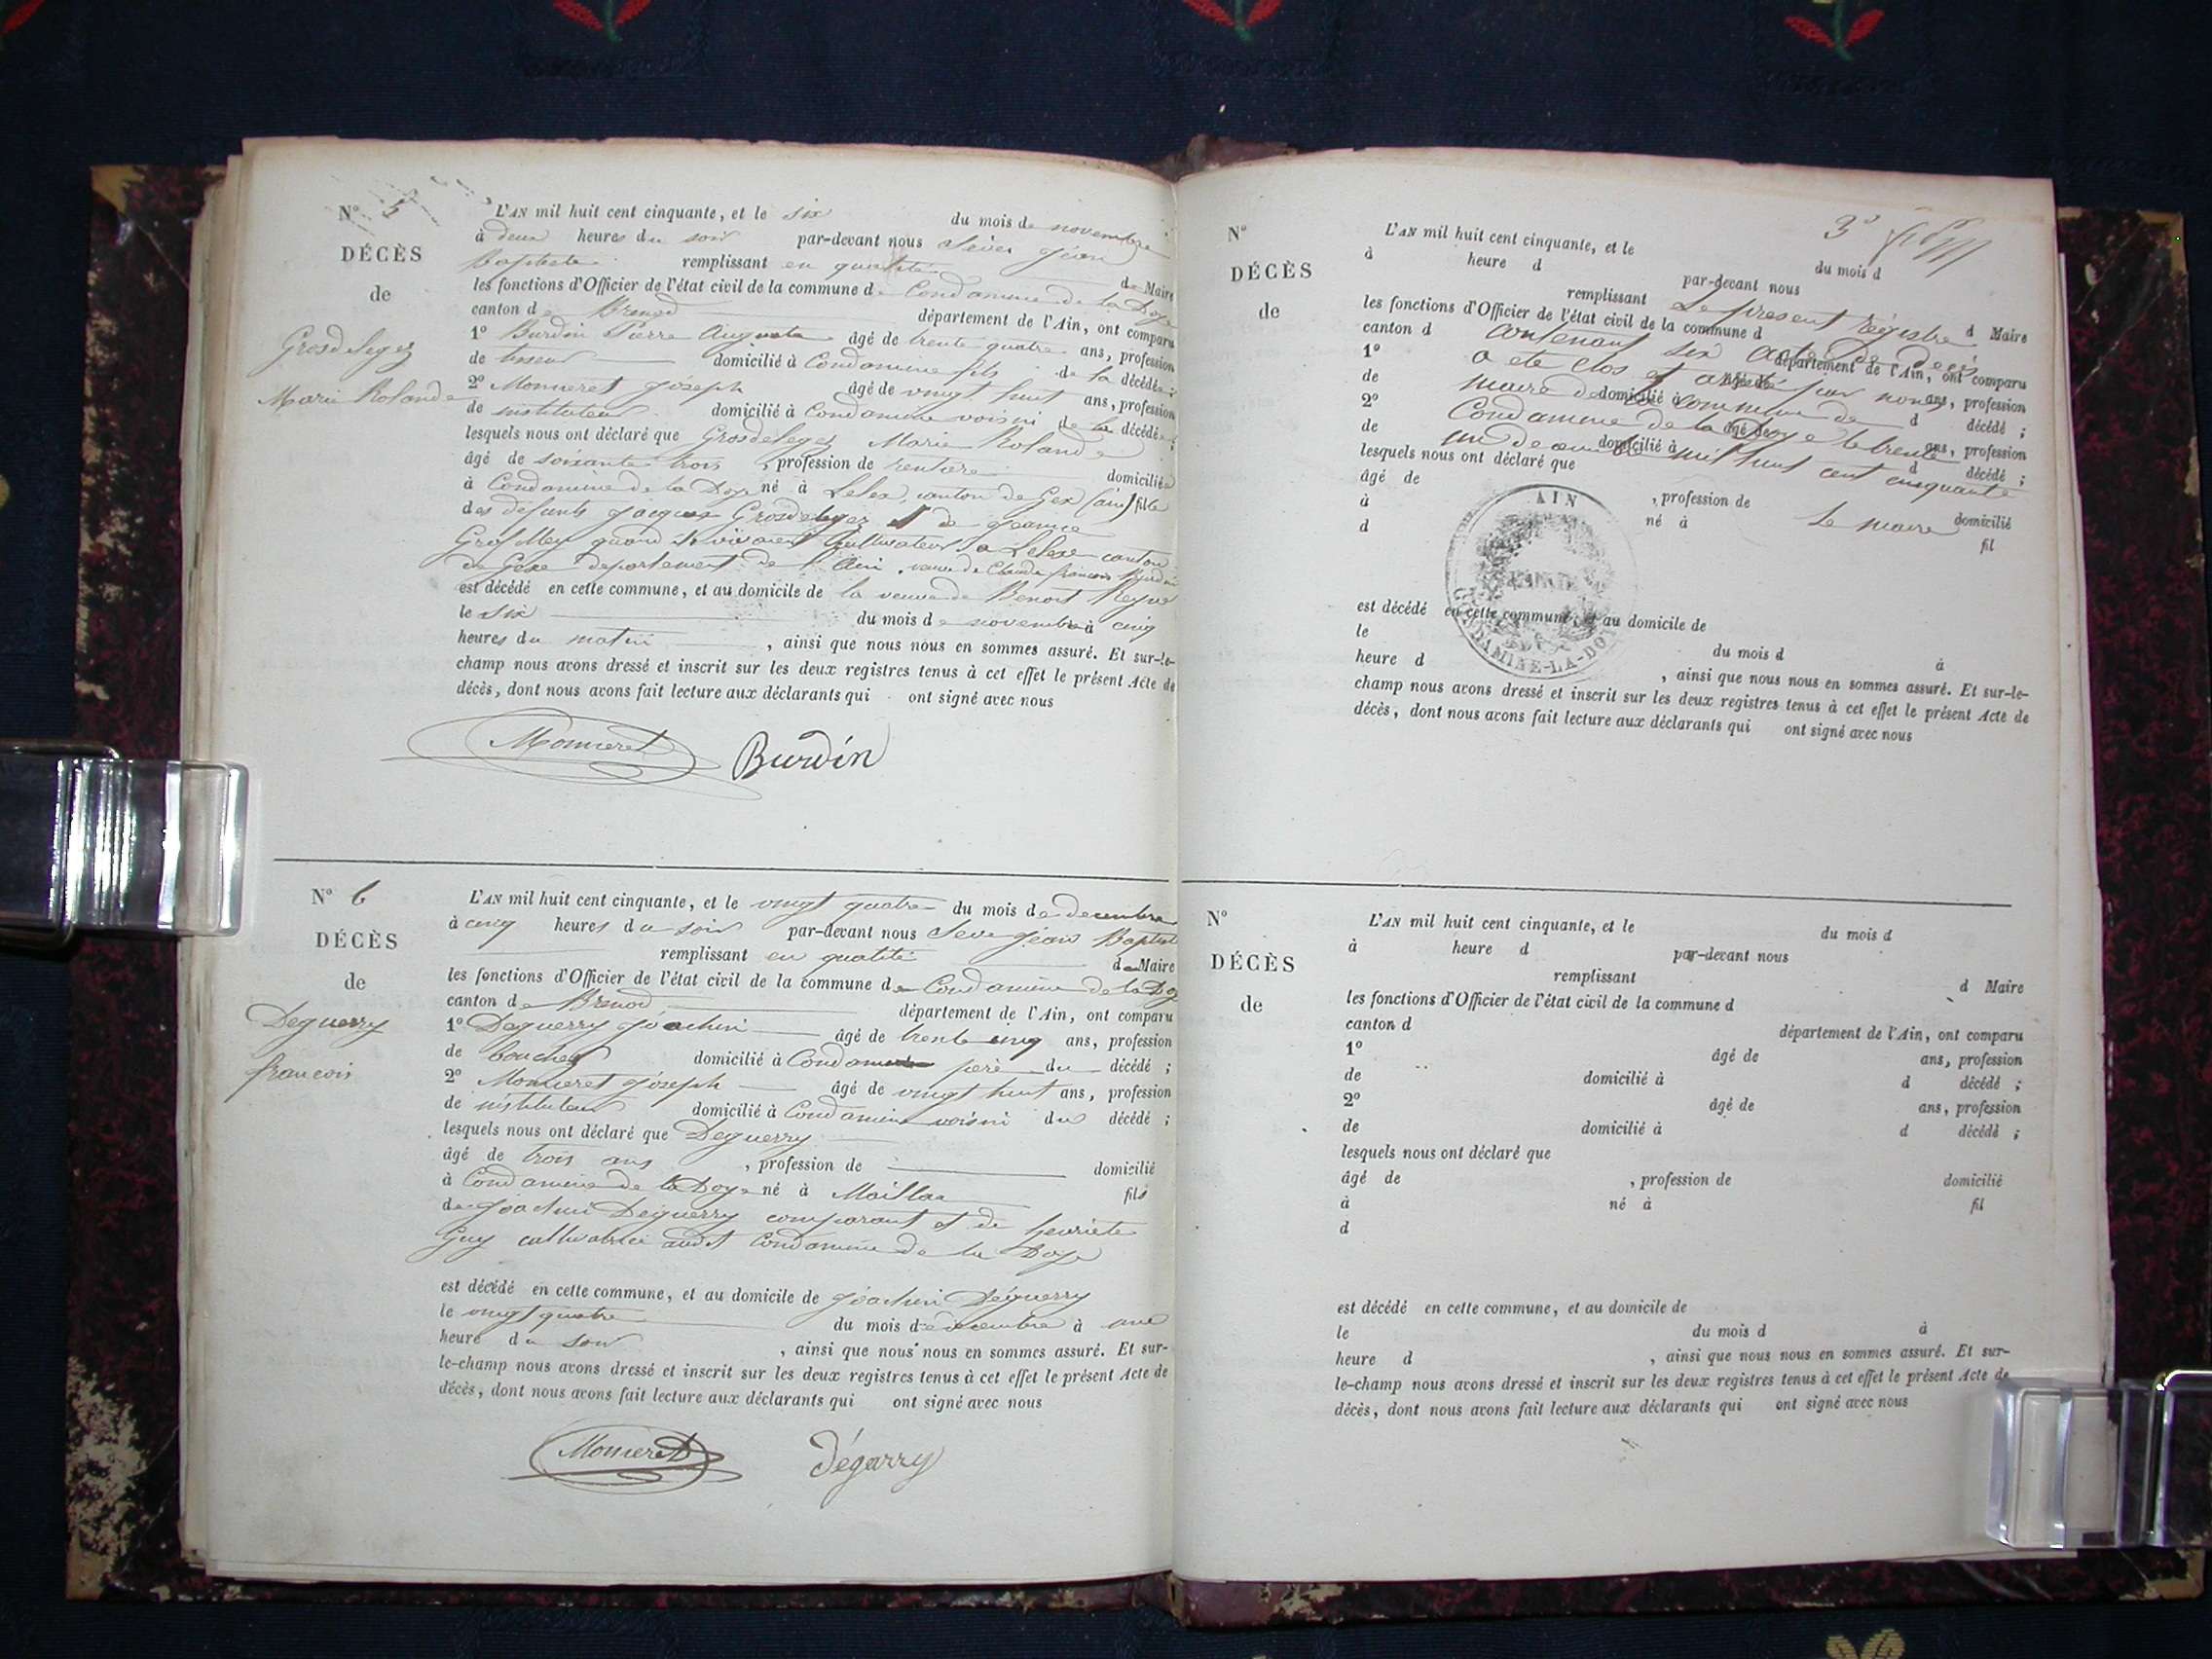 N° 5
DÉCÈS
de
Grosdelegez
Marie Rolande
L'AN mil huit cent cinquante, et le six du mois de novembre
à deux heures du soir par-devant nous Sève Jean
baptiste remplissant en qualité de Maire
les fonctions d'Officier de l'état civil de la commune de Condamine de la Doye
canton de Brenod département de l'Ain, ont comparu
1° Burdin Pierre Auguste âgé de trente quatre ans, profession
de domicilié à Condamine fils de la décédée ;
2° Monneret Joseph âgé de vingt huit ans, profession
de instituteur domicilié à Condamine voisin de la décédée ;
lesquels nous ont déclaré que Grosdelegez Marie Rolande
âgé de soixante trois , profession de rentiere domiciliée
à Condamine de la Doye né à Lelex, canton de Gex (ain) fille
des defunts Jacques Grosdelegez et de Jeanne
quand ils vivaient Cultivateurs a Lelex canton
de Gex departement de l'Ain, veuve de Claude françois Burdin
est décédé en cette commune, et au domicile de la veuve de Benoit
le six du mois de novembre à cinq
heures du matin , ainsi que nous nous en sommes assuré. Et sur-le-
champ nous avons dressé et inscrit sur les deux registres tenus à cet effet le présent Acte de
décès, dont nous avons fait lecture aux déclarants qui ont signé avec nous
Monneret Burdin
N° 6
DÉCÈS
de
Deguerry
francois
L'AN mil huit cent cinquante, et le vingt quatre du mois de decembre
à cinq heures du soir par-devant nous Seve Jean Baptiste
remplissant en qualité de Maire
les fonctions d'Officier de l'état civil de la commune de Condamine de la Doye
canton de Brenod département de l'Ain, ont comparu
1° Deguerry Joachim âgé de trente cinq ans, profession
de boucher domicilié à Condamine père du décédé ;
2° Monneret Joseph âgé de vingt huit ans, profession
de instituteur domicilié à Condamine voisin du décédé ;
lesquels nous ont déclaré que Deguerry
âgé de trois ans , profession de domicilié
à Condamine de la Doye né à Maillat fils
de Joachim Deguerry comparant et de henriete
Guy cultivatrice audit Condamine de la Doye
est décédé en cette commune, et au domicile de Joachim Déguerry
le vingt quatre du mois decembre à une
heure du soir , ainsi que nous nous en sommes assuré. Et sur-
le-champ nous avons dressé et inscrit sur les deux registres tenus à cet effet le présent Acte de
décès, dont nous avons fait lecture aux déclarants qui ont signé avec nous
Monneret Dégarry
3°
N°
DÉCÈS
de
L'AN mil huit cent cinquante, et le du mois d
à heure d par-devant nous
remplissant d Maire
les fonctions d'Officier de l'état civil de la commune d
canton d département de l'Ain, ont comparu
1° âgé de ans, profession
de domicilié à d décédé ;
2° âgé de ans, profession
de domicilié à d décédé ;
lesquels nous ont déclaré que
Le present régistre
contenant six actes de Decès
a été clos et arreté par nous
maire de la commune de
Condamine de la Doye le trente
un decembre mil huit cent cinquante
Le maire
âgé de , profession de domicilié
à né à fil
d
AIN
CONDAMINE-LA-DOYE
est décédé en cette commune, et au domicile de
le du mois d à
heure d , ainsi que nous nous en sommes assuré. Et sur-le-
champ nous avons dressé et inscrit sur les deux registres tenus à cet effet le présent Acte de
décès, dont nous avons fait lecture aux déclarants qui ont signé avec nous
N°
DÉCÈS
de
L'AN mil huit cent cinquante, et le du mois d
à heure d par-devant nous
remplissant d Maire
les fonctions d'Officier de l'état civil de la commune d
canton d département de l'Ain, ont comparu
1° âgé de ans, profession
de domicilié à d décédé ;
2° âgé de ans, profession
de domicilié à d décédé ;
lesquels nous ont déclaré que
âgé de , profession de domicilié
à né à fil
d
est décédé en cette commune, et au domicile de
le du mois d à
heure d , ainsi que nous nous en sommes assuré. Et sur-
le-champ nous avons dressé et inscrit sur les deux registres tenus à cet effet le présent Acte de
décès, dont nous avons fait lecture aux déclarants qui ont signé avec nous